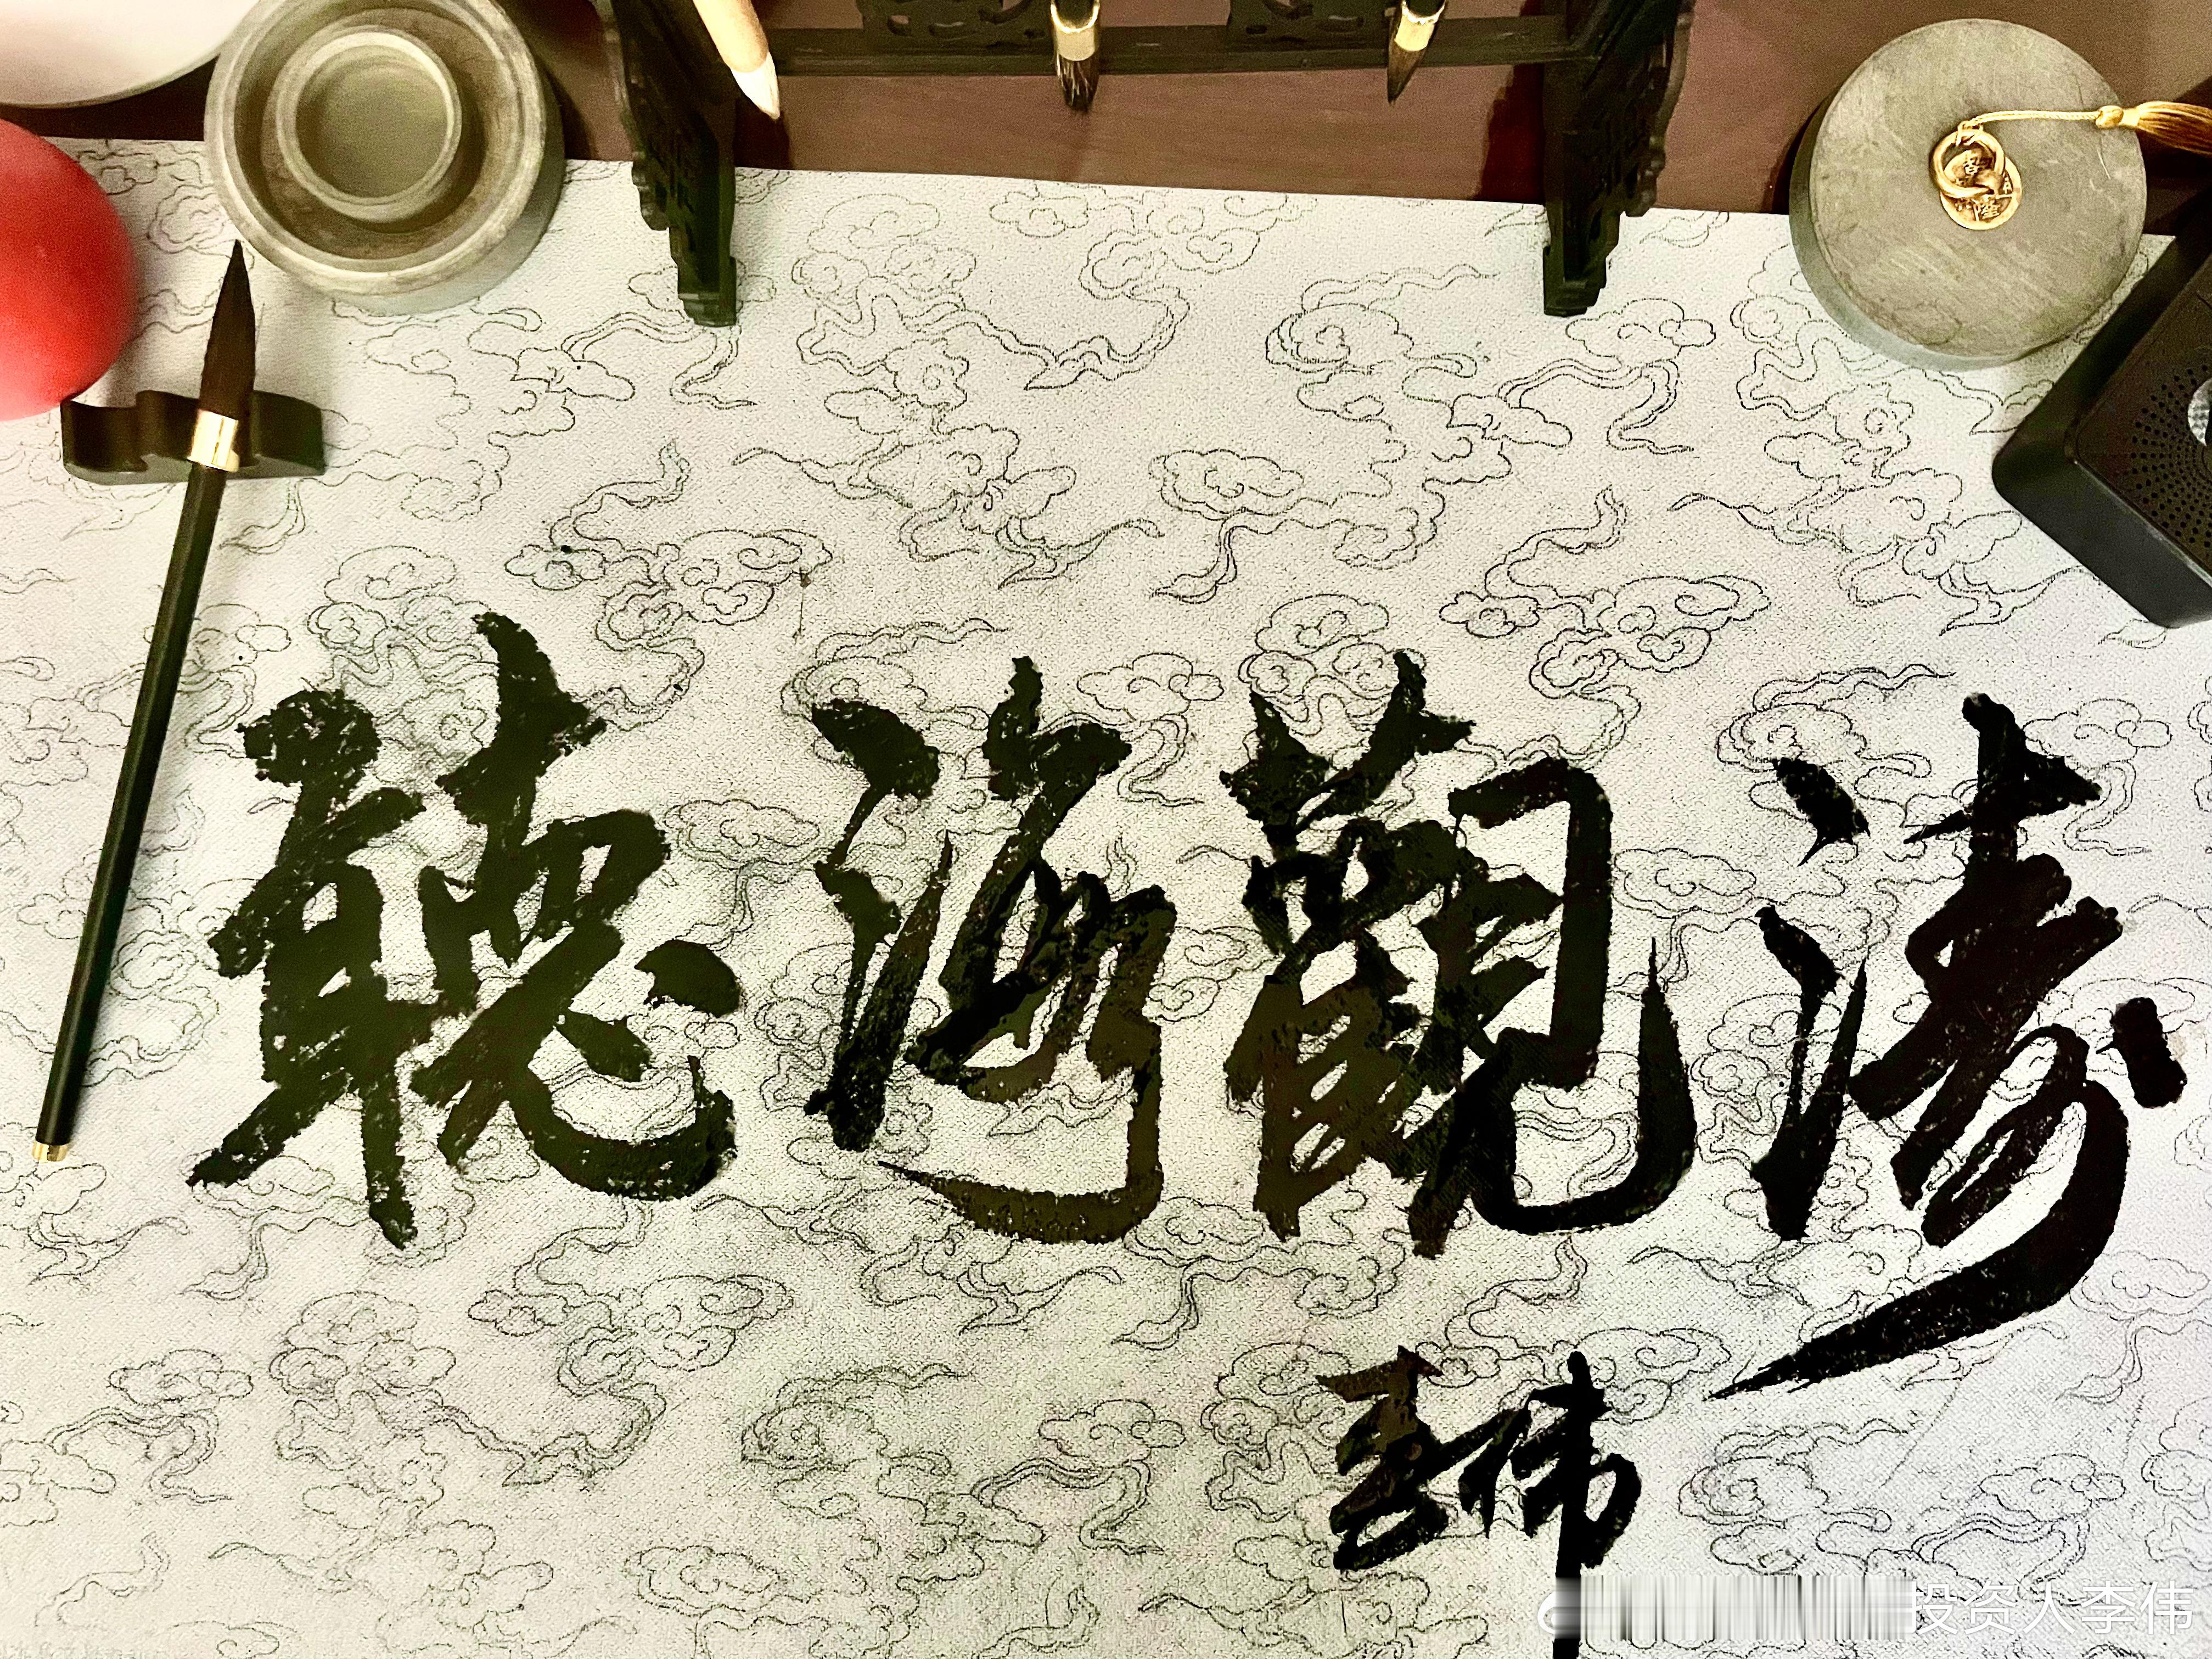 聽海觀濤
李伟
投资人李伟